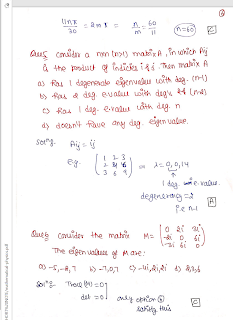 11πx/30 = 2πn ⇒ n/m = 60/11 (n=60) C
Ques consider a nxn (n>1) matrix A, in which Aij
is the product of indices i & j. Then matrix A
a) Has 1 degenerate eigenvalue with deg. (n-1)
b) Has 2 deg evalue with deg's
c) Has 1 deg. e.value with deg n
d) doesn't have any deg eigen value.
Solⁿg. Aij = ij
e.g. ( 1 2 3
2 4 6
3 6 9 ) ⇒ λ = 0,0,14
1 deg. e.value.
degeneracy = 2
i.e n-1
A
Ques Consider the matrix M = [ 0 2i 3i
-2i 0 6i
-3i -6i 0 ]
The eigen values of M are:
a) -5,-2,7 b) -7,0,7 c) -4i,2i,2i d) 2,3,6
Solⁿg. Trace (M) = 0
det = 0 only option
satisfy this